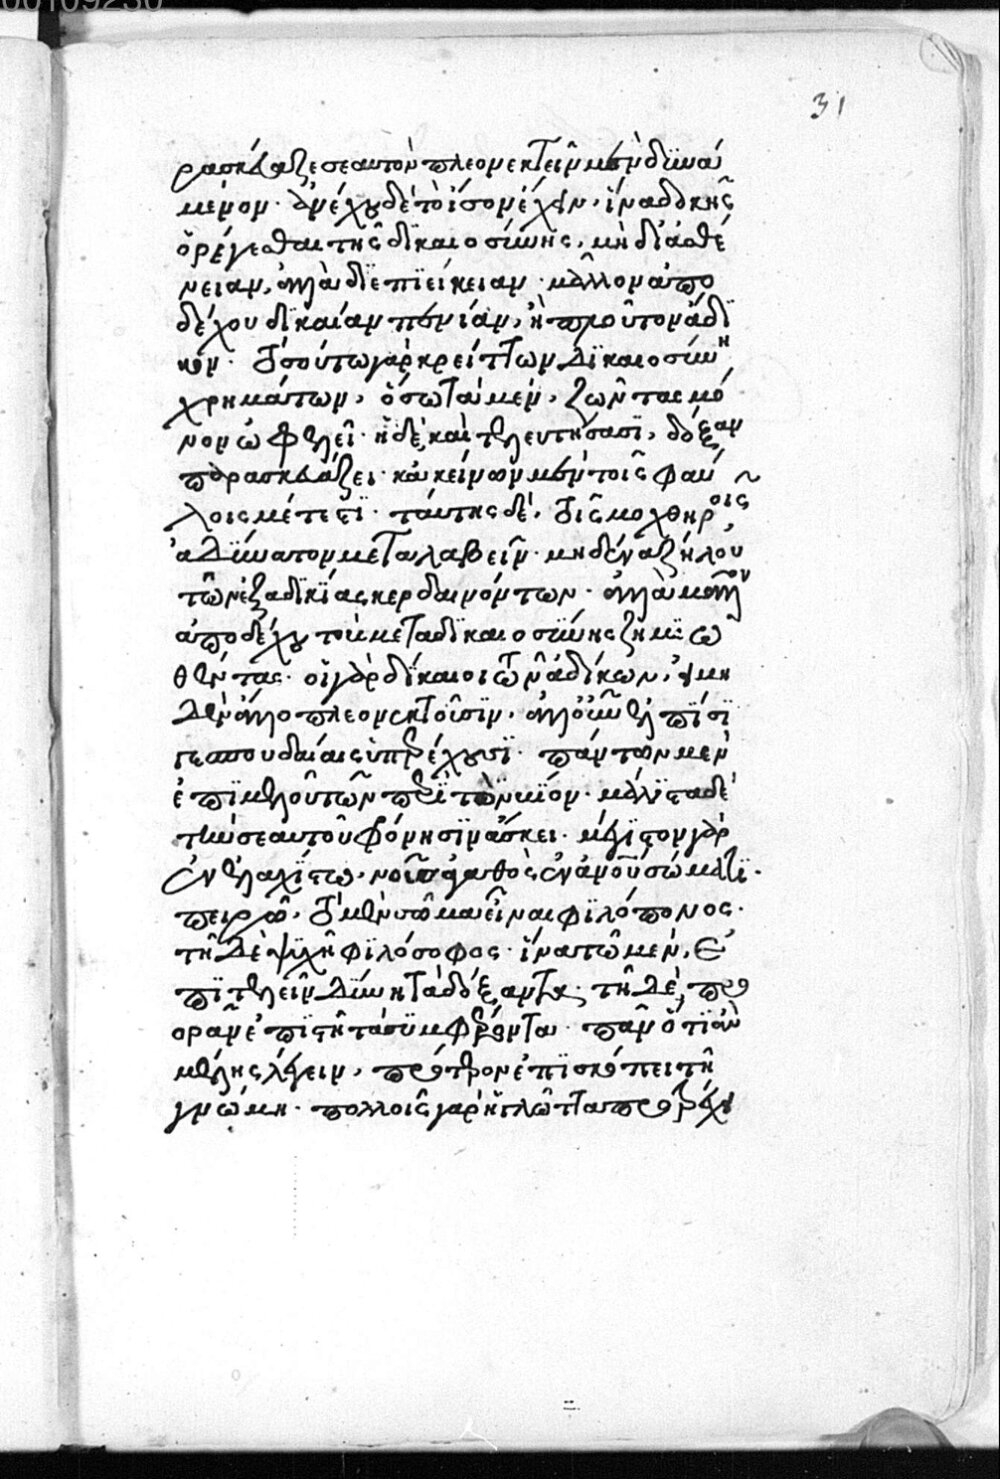 00109230
31
ρασκεύαζε σεαυτὸν πλεονεκτεῖν μὲν δϋνά
μενον· ἀνέχου δὲ τὸ ἴσον ἔχειν, ἵνα δοκῇς
ὀρέγεσθαι τῆς δϊκαιοσύνης, μὴ δι' ἀσθέ
νειαν, ἀλλὰ δϊ' ἐπϊείκειαν· μᾶλλον ἀπο
δέχου δϊκαίαν πενίαν, ἢ πλοῦτον ἄδϊ
κον· τοσούτω γὰρ κρείττων δϊκαιοσύνη
χρημάτων, ὅσω τὰ μὲν, ζῶντας μό
νον ὠφελεῖ· ἡ δὲ, καὶ τελευτήσασϊ, δόξαν
παρασκευάζει· κἀκείνων μὲν τοῖς φαύ
λοις μέτεστϊ· ταύτης δὲ, τοῖς μοχθηροῖς
ἀδϋνατον μεταλαβεῖν· μηδένα ζήλου
τῶν ἐξ ἀδϊκϊας κερδαινόντων· ἀλλὰ μᾶλλον
ἀποδέχου τοὺς μετὰ δϊκαιοσύνης ζημϊω
θέντας· οἱ γὰρ δίκαιοι τῶν ἀδίκων, εἰ μη
δὲν ἄλλο πλεονεκτοῦσϊν, ἀλλ' οὖν ἐλπίσϊ
γε σπουδαίαις ὑπερέχουσϊ· πάντων μὲν
ἐπϊμελοῦ τῶν περὶ τὸν βίον· μάλϊστα δὲ
τὴν σεαυτοῦ φρόνησϊν ἄσκει· μέγϊστον γὰρ
ἐν ἐλαχίστω, νοῦς ἀγαθὸς ἐν ἀνθρώπου σώματϊ·
πειρῶ, τὸ μὲν σῶμα εἶναι φϊλόπονος·
τῇ δὲ ψυχῇ φϊλόσοφος· ἵνα τῶ μὲν, ἐ
πϊτελεῖν δύνη τὰ δόξαντα· τῇ δὲ, προ
ορᾶν ἐπϊστῇ τὰ συμφέροντα· πᾶν ὅ τϊ ἂν
μέλης λέγειν, πρότερον ἐπϊσκόπει τῇ
γνώμη· πολλοῖς γὰρ ἡ γλῶττα προτρέχει